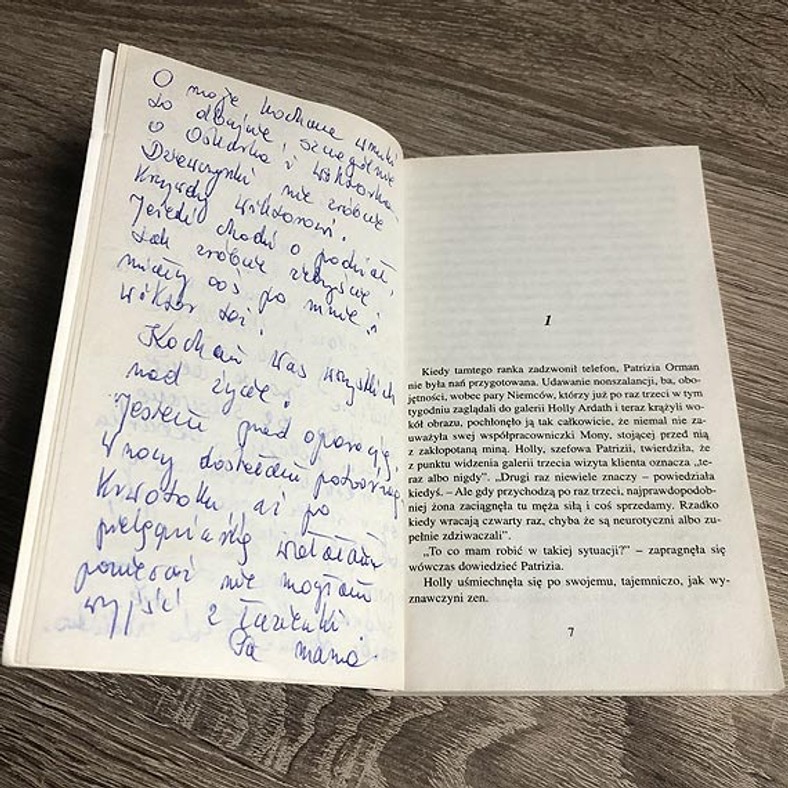 O moje kochane wnuki
to dbajcie, szczególnie
o Oskarka i Wiktorka
Dziewczynki nie zróbcie
krzywdy Wiktorowi.
Jeżeli chodzi o podział,
tak zróbcie żebyście
miały coś po mnie i
Wiktor też.
Kocham Was wszystkich
nad życie.
Jestem przed operacją,
w nocy dostałam
krwotoku, aż po
pielęgniarkę wołałam
ponieważ nie mogłam
wyjść z łazienki.
Pa mama.
1
Kiedy tamtego ranka zadzwonił telefon, Patrizia Orman
nie była nań przygotowana. Udawanie nonszalancji, ba, obo-
jętności, wobec pary Niemców, którzy już po raz trzeci w tym
tygodniu zaglądali do galerii Holly Ardath i teraz krążyli wo-
kół obrazu, pochłonęło ją tak całkowicie, że niemal nie za-
uważyła swej współpracowniczki Mony, stojącej przed nią
z zakłopotaną miną. Holly, szefowa Patrizii, twierdziła, że
z punktu widzenia galerii trzecia wizyta klienta oznacza „te-
raz albo nigdy”. „Drugi raz niewiele znaczy – powiedziała
kiedyś. – Ale gdy przychodzą po raz trzeci, najprawdopodob-
niej żona zaciągnęła tu męża siłą i coś sprzedamy. Rzadko
kiedy wracają czwarty raz, chyba że są neurotyczni albo zu-
pełnie zdziwaczali”.
„To co mam robić w takiej sytuacji?” – zapragnęła się
wówczas dowiedzieć Patrizia.
Holly uśmiechnęła się po swojemu, tajemniczo, jak wy-
znawczyni zen.
7